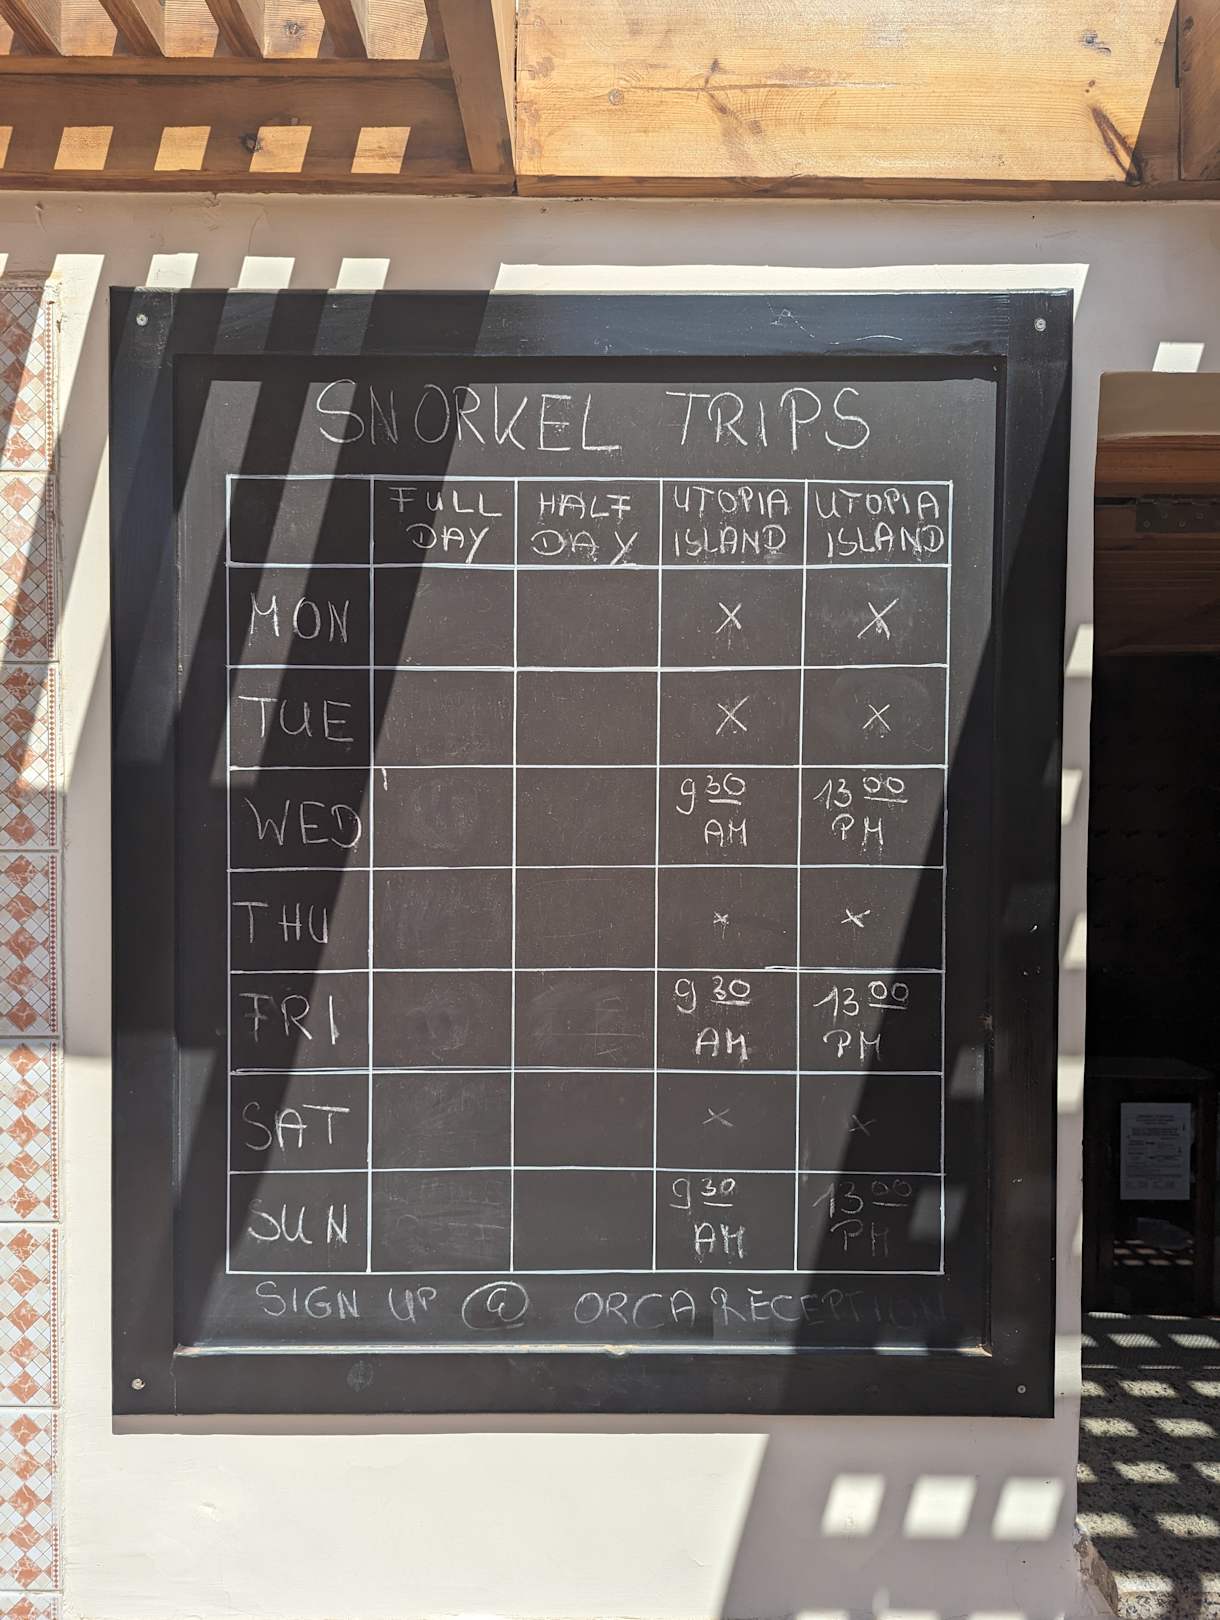 SNORKEL TRIPS
FULL DAY HALF DAY UTOPIA ISLAND UTOPIA ISLAND
MON X X
TUE X X
WED 9 30 AM 13 00 PM
THU x x
FRI 9 30 AM 13 00 PM
SAT x x
SUN 9 30 AM 13 00 PM
SIGN UP @ ORCA RECEPTION